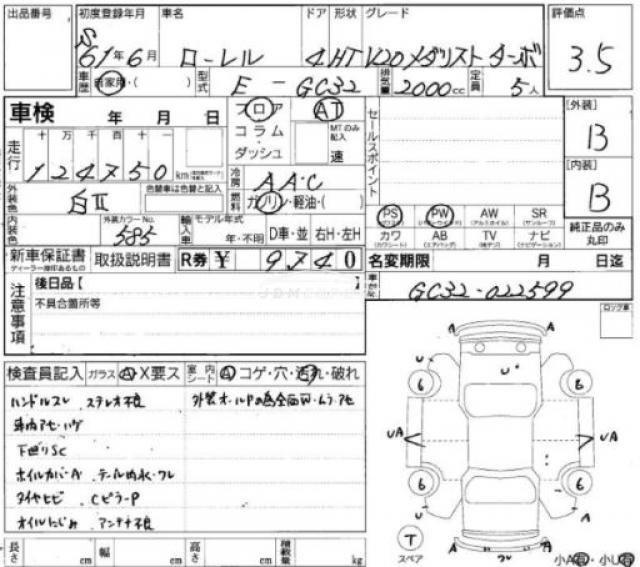 出品番号 初度登録年月 車名 ドア 形状 グレード 評価点
S61年6月 ローレル 4 HT V20メダリスト ターボ 3.5
車歴 自家用・( ) 型式 E-GC32 排気量 2000cc 定員 5人
車検 年 月 日 フロア AT セールスポイント [外装]
コラム・ダッシュ MTのみ記入 速 B
走行 十 万 千 百 十 一
124750km
冷房 AA・C [内装]
外装色 白II 色替車は色替と記入 燃料 ガソリン・軽油・( ) B
内装色 外装カラーNo. 585 輸入車 モデル年式 年・不明 D車・並 右H・左H
PS PW AW SR
(パワーウインドウ) (アルミホイル) (サンルーフ)
カワ AB TV ナビ
(カワシート) (エアバッグ) (ナビゲーション)
純正品のみ丸印
新車保証書 取扱説明書 R券 ¥ 9740 名変期限 月 日迄
ディーラー捺印あるもの
GC32-022599
注意事項 後日品【 】
不具合箇所等
ロック車
検査員記入 ガラス A X要ス 室内シート A コゲ・穴・汚れ・破れ
ハンドルスレ ステレオ不良
車内アセ・ハゲ
下廻りSC
ホイルカバーA
タイヤヒビ CピラーP
オイルにじみ アンテナ不良
A A
U U
6 6
U
UA UA
6 6
U U
A A
T
スペア
小A有・小U有
長さ cm 幅 cm 高さ cm 積載量 kg